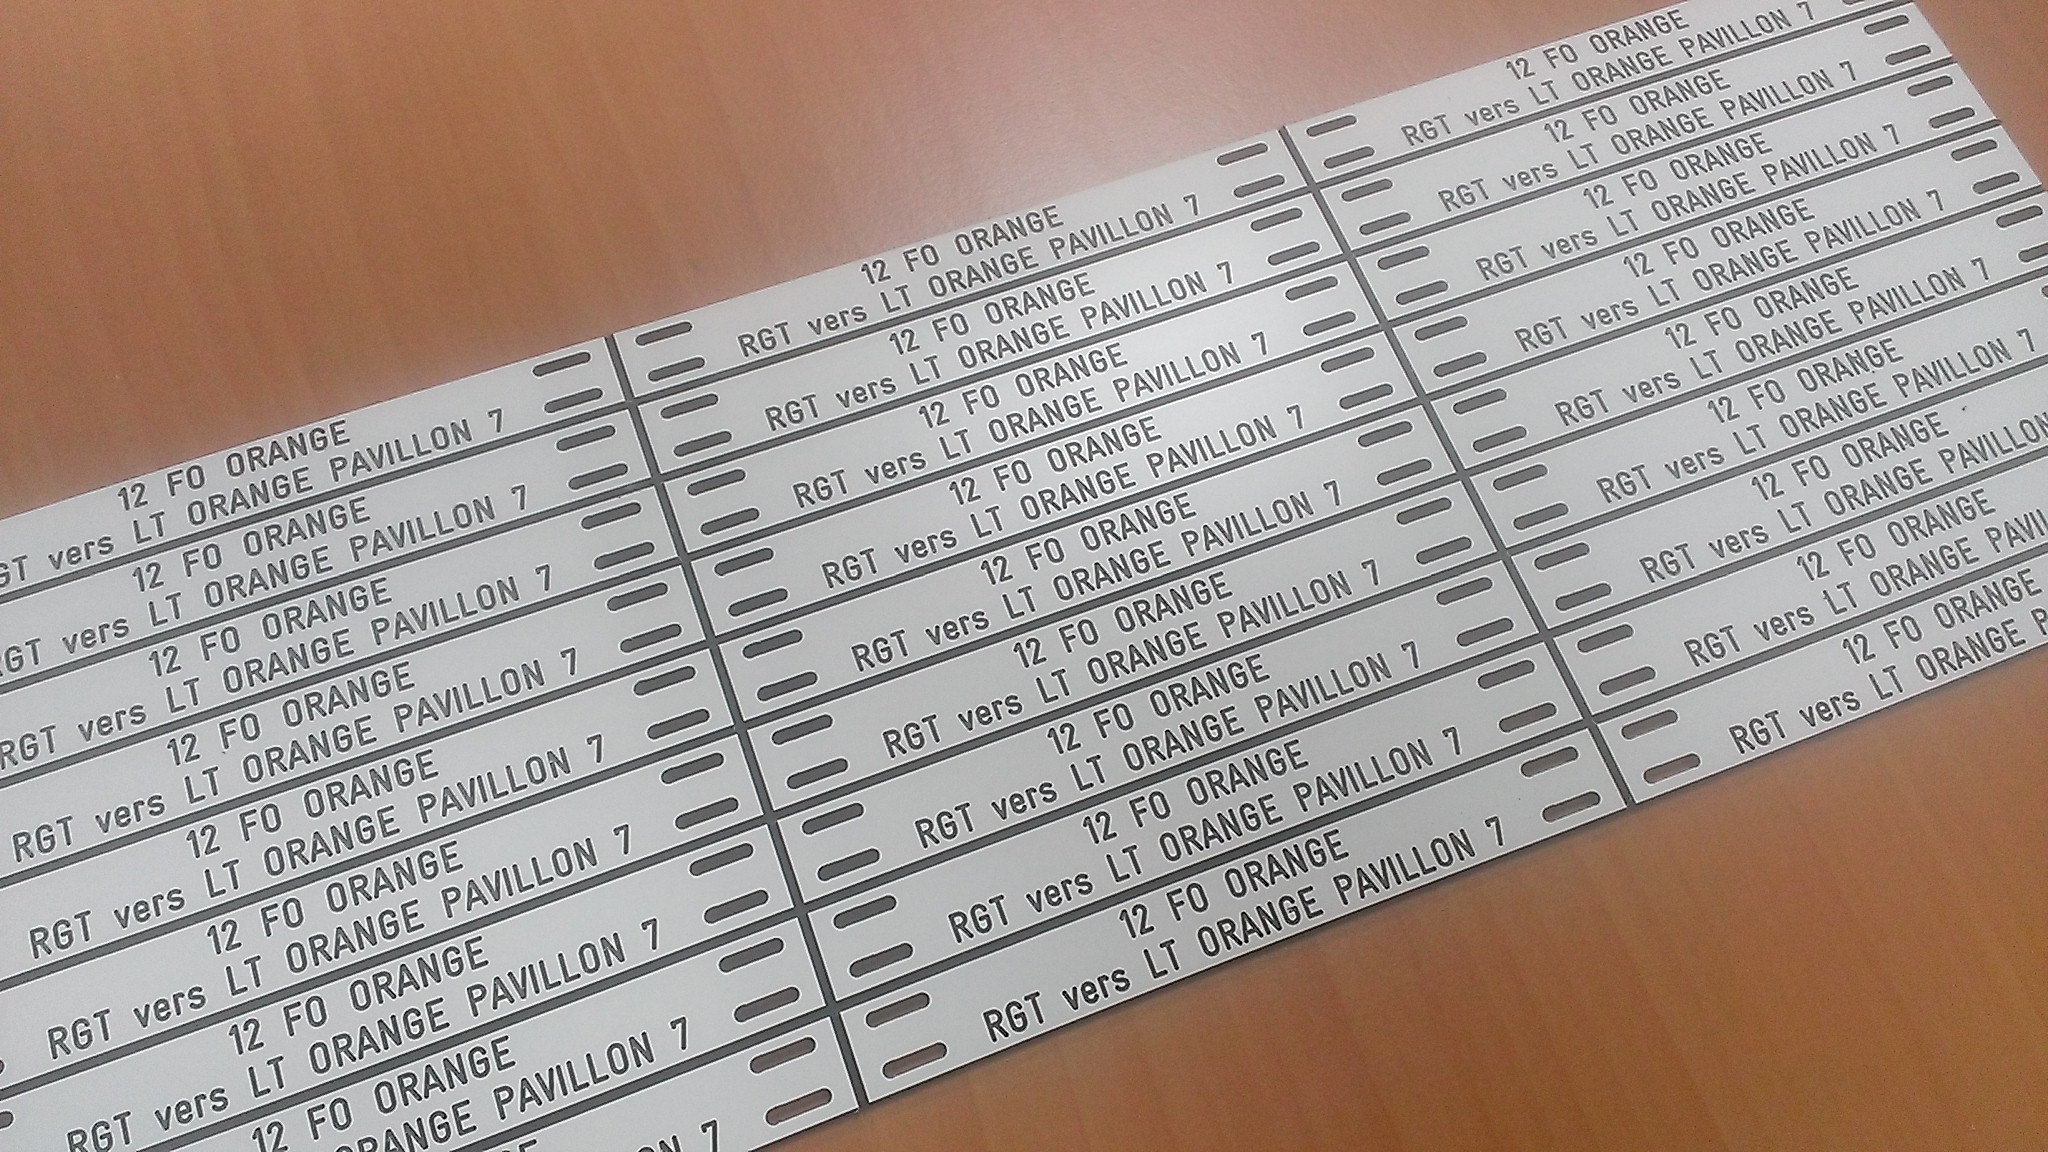 12 FO ORANGE
GT vers LT ORANGE PAVILLON 7
12 FO ORANGE
RGT vers LT ORANGE PAVILLON 7
12 FO ORANGE
RGT vers LT ORANGE PAVILLON 7
12 FO ORANGE
RGT vers LT ORANGE PAVILLON 7
12 FO ORANGE
RGT vers LT ORANGE PAVILLON 7
12 FO ORANGE
RGT vers LT ORANGE PAVILLON 7
12 FO ORANGE
RGT vers LT ORANGE PAVILLON 7
12 FO ORANGE
ORANGE PAVILLON 7
ON 7
12 FO ORANGE
RGT vers LT ORANGE PAVILLON 7
12 FO ORANGE
RGT vers LT ORANGE PAVILLON 7
12 FO ORANGE
RGT vers LT ORANGE PAVILLON 7
12 FO ORANGE
RGT vers LT ORANGE PAVILLON 7
12 FO ORANGE
RGT vers LT ORANGE PAVILLON 7
12 FO ORANGE
RGT vers LT ORANGE PAVILLON 7
12 FO ORANGE
RGT vers LT ORANGE PAVILLON 7
12 FO ORANGE
RGT vers LT ORANGE PAVILLON 7
12 FO ORANGE
RGT vers LT ORANGE PAVILLON 7
12 FO ORANGE
RGT vers LT ORANGE PAVILLON 7
12 FO ORANGE
RGT vers LT ORANGE PAVILLON 7
12 FO ORANGE
RGT vers LT ORANGE PAVILLON 7
12 FO ORANGE
RGT vers LT ORANGE PAVILLON 7
12 FO ORANGE
RGT vers LT ORANGE PAVILLON 7
12 FO ORANGE
RGT vers LT ORANGE PAVILLON 7
12 FO ORANGE
RGT vers LT ORANGE PAVILLON
12 FO ORANGE
RGT vers LT ORANGE PAVIL
12 FO ORANGE
RGT vers LT ORANGE P